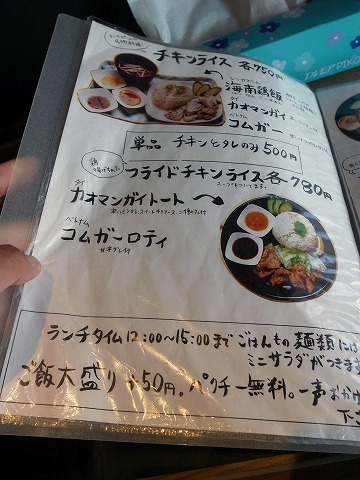 エルモア PIKO
チキンライス 各750円
シンガポール
海南鶏飯
タイ
カオマンガイ
ベトナム
コムガー
単品 チキンとタレのみ 500円
フライドチキンライス各780円
スープもついてます。
タイ
カオマンガイトート
ベトナム
コムガーロティ
ランチタイム12:00〜15:00まで ごはんもの 麺類には
ミニサラダがつきます
ご飯大盛り +50円。パクチー無料。一声おかけ
下さ